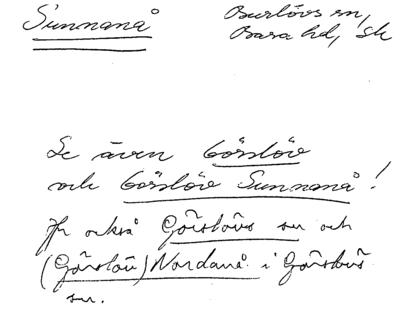 Sunnanå
Burlövs sn,
Bara hd, Sk
Se även Görslöv
och Görslöv Sunnanå!
Jfr också Görslövs sn och
(Görslöv) Nordanå i Görslövs
sn.